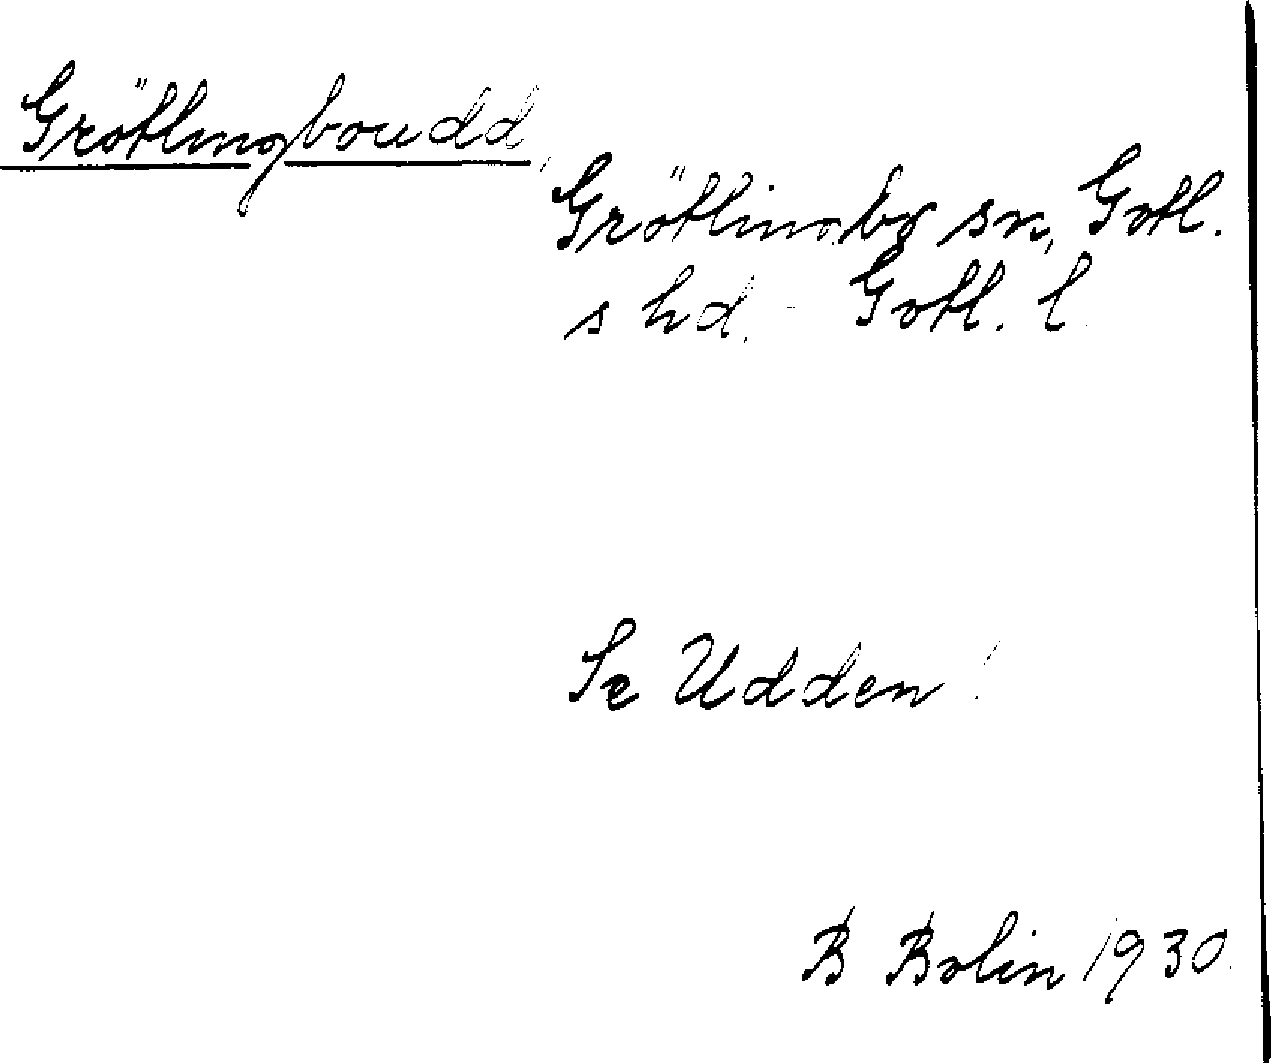 Grötlingboudd,
Grötlingby sn, Gotl.
s hd. - Gotl. l.
Se Udden!
B Bolin 1930.